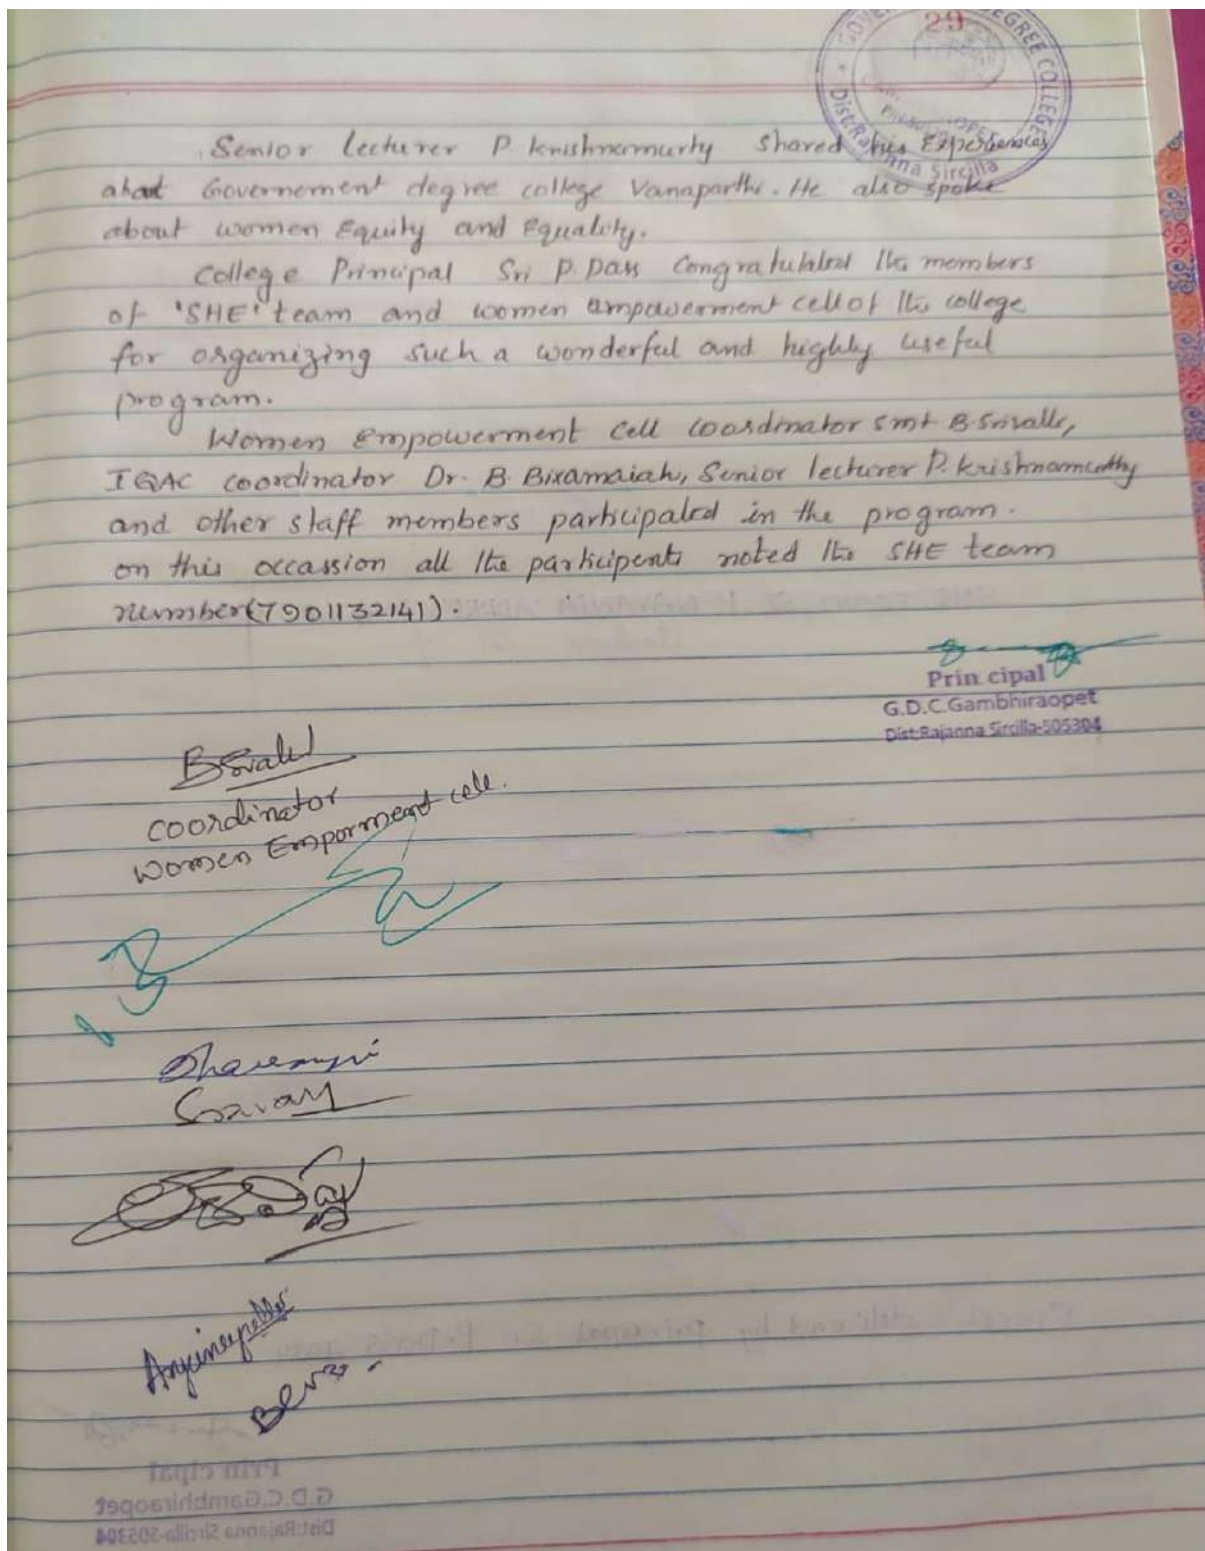 29
GOVERNMENT DEGREE COLLEGE
Dist:Rajanna Sircilla
Senior lecturer P. krishnamurty shared his Experiences
about Governement degree college Vanaparthi. He also spoke
about women Equity and Equality.
College Principal Sri P. Dass Congratulated the members
of 'SHE' team and women empowerment cell of the college
for organizing such a wonderful and highly useful
program.
Women Empowerment Cell coordinator smt B. Srivalli,
IQAC coordinator Dr. B. Bixamaiah, Senior lecturer P. krishnamurthy
and other staff members participated in the program.
on this occassion all the participents noted the SHE team
number(7901132141).
Prin cipal
G.D.C.Gambhiraopet
Dist:Rajanna Sircilla-505304
coordinator
women Emporment cell.
Prin cipal
G.D.C.Gambhiraopet
Dist:Rajanna Sircilla-505304